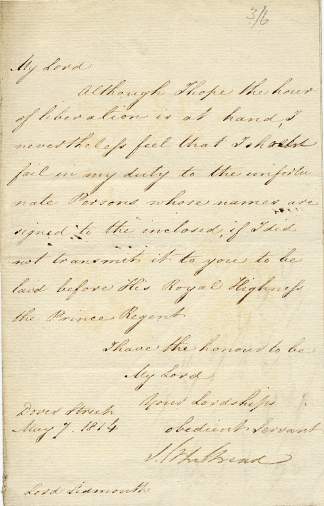 3/6
My Lord
Although I hope the hour
of liberation is at hand, I
nevertheless feel that I should
fail in my duty to the unfortu
nate Persons whose names are
signed to the inclosed, if I did
not transmit it to you to be
laid before His Royal Highness
the Prince Regent
I have the honour to be
My Lord
Your Lordships
obedient Servant
Dover Street
May 7. 1814
Lord Sidmouth